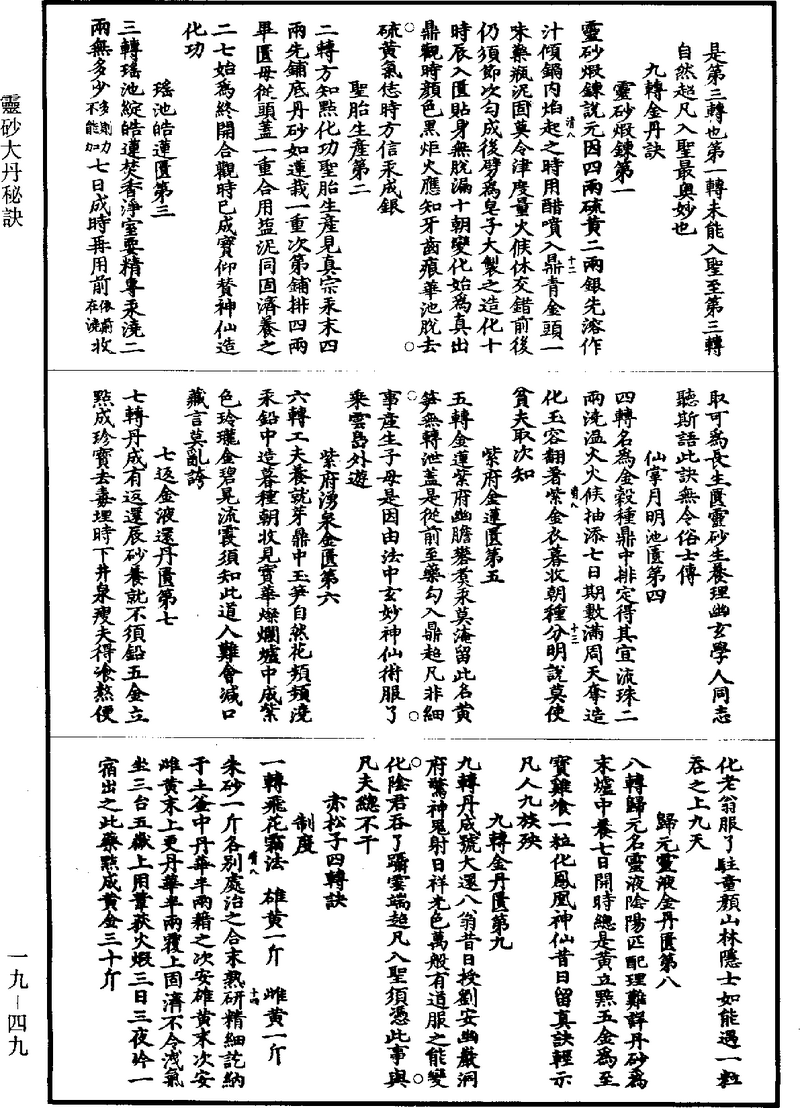 靈砂大丹秘訣
一九—四九
是第三轉也第一轉未能入聖至第三轉
自然超凡入聖最奧妙也
九轉金丹訣
靈砂煅鍊第一
靈砂煅鍊說元因四兩硫黃二兩銀先溶作
汁傾鍋內焰起之時用醋噴入鼎青金頭一
味藥瓶泥固莫令津度量火候休交錯前後
仍須節次勻成後劈為皂子大製之造化十
時辰入匱貼身無脫漏十朝變化始為真出
鼎觀時顏色黑炬火應知牙齒痕華池脫去
硫黃氣恁時方信汞成銀
聖胎生產第二
二轉方知點化功聖胎生產見真宗汞末四
兩先鋪底丹砂如蓮栽一重次第鋪排四兩
畢匱母從頭蓋一重合用益泥同固濟養之
二七始為終開合觀時已成寶仰贊神仙造
化功
瑤池皓蓮匱第三
三轉瑤池綻皓蓮焚香淨室要精專汞澆二
兩無多少多則力不能加七日成時再用前依前在澆收
取可為長生匱靈砂生養理幽玄學人同志
聽斯語此訣無令俗士傳
仙掌月明池匱第四
四轉名為金穀種鼎中排定得其宜流珠二
兩澆溫火火候抽添七日期數滿周天奪造
化玉容翻著紫金衣暮收朝種分明說莫使
貧夫取次知
紫府金蓮匱第五
五轉金蓮紫府幽膽礬煑汞莫淹留此名黃
笋無轉泄蓋是從前至藥勾入鼎超凡非細
事產生子母是因由法中玄妙神仙術服了
乘雲島外遊
紫府湧泉金匱第六
六轉工夫養就芽鼎中玉笋自然花頻頻澆
汞鉛中造暮種朝收見寶華燦爛爐中成紫
色玲瓏金碧晃流霞須知此道人難會減口
藏言莫亂誇
七返金液還丹匱第七
七轉丹成有返還辰砂養就不須鉛五金立
點成珍寶去毒埋時下井泉瘦夫得飡熬便
化老翁服了駐童顏山林隱士如能遇一粒
吞之上九天
歸元靈液金丹匱第八
八轉歸元名靈液陰陽匹配理難詳丹砂為
末爐中養七日開時總是黃立點五金為至
寶雞飡一粒化鳳凰神仙昔日留真訣輕示
凡人九族殃
九轉金丹匱第九
九轉丹成號大還八翁昔日授劉安幽嚴洞
府驚神鬼射日祥光色萬般有道服之能變
化陰君吞了躡雲端超凡入聖須憑此事與
凡夫總不干
赤松子四轉訣
制度
一轉飛花霜法　雄黃一斤　雌黃一斤
朱砂一斤各別處治之合末熟研精細訖納
于土釜中丹華半兩藉之次安雄黃末次安
雌黃末上更丹華半兩覆上固濟不令洩氣
坐三台五嶽上用葦荻火煅三日三夜冷一
宿出之此藥點成黃金三十斤